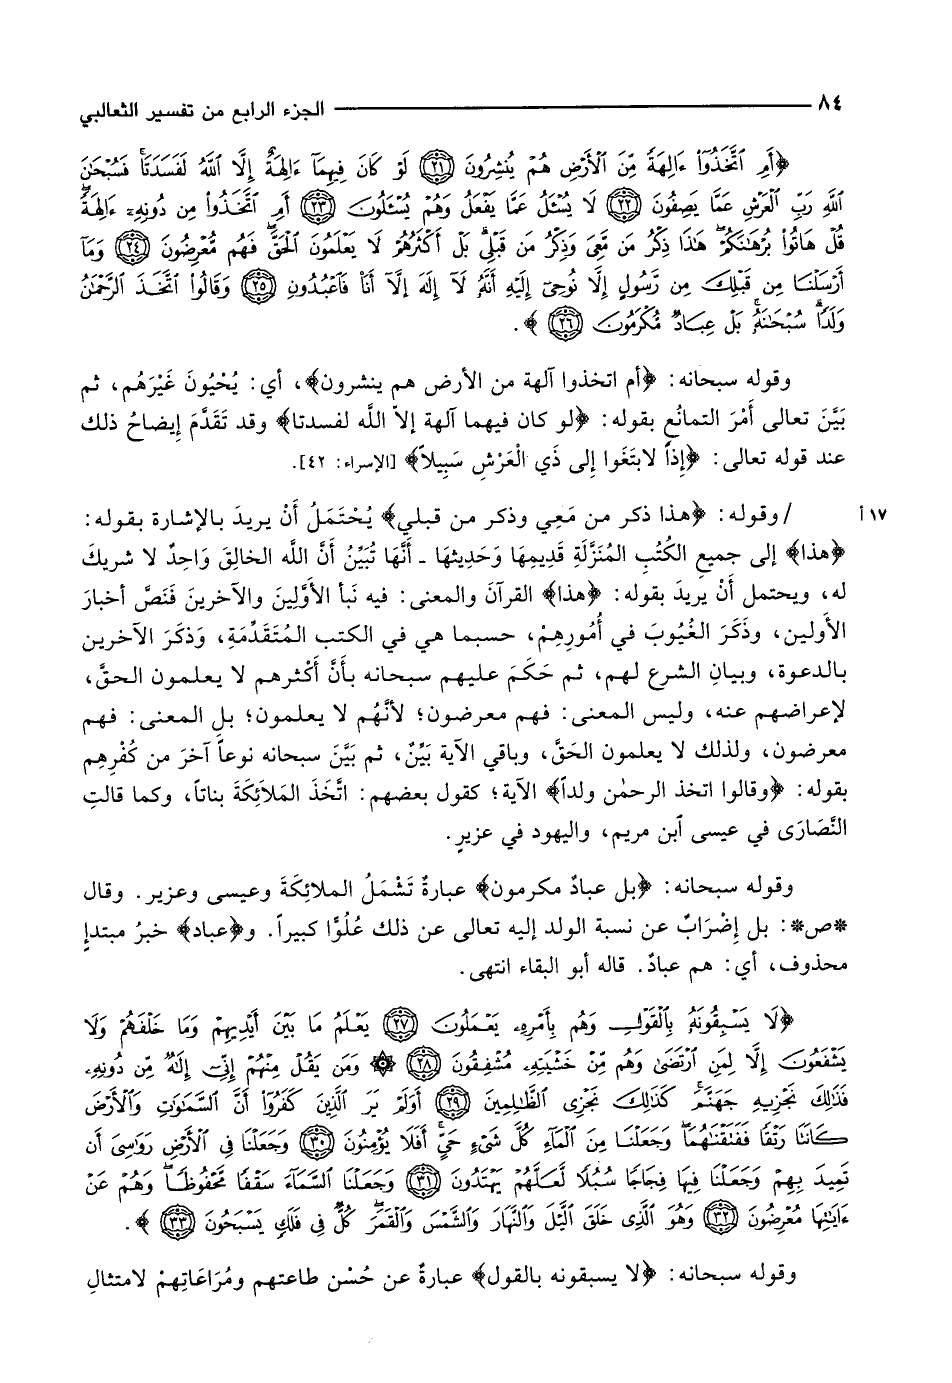 ٨٤ الجزء الرابع من تفسير الثعالبي
﴿أَمِ ٱتَّخَذُوٓا۟ ءَالِهَةً مِّنَ ٱلْأَرْضِ هُمْ يُنشِرُونَ ﴿٢١﴾ لَوْ كَانَ فِيهِمَآ ءَالِهَةٌ إِلَّا ٱللَّهُ لَفَسَدَتَا ۚ فَسُبْحَٰنَ
ٱللَّهِ رَبِّ ٱلْعَرْشِ عَمَّا يَصِفُونَ ﴿٢٢﴾ لَا يُسْـَٔلُ عَمَّا يَفْعَلُ وَهُمْ يُسْـَٔلُونَ ﴿٢٣﴾ أَمِ ٱتَّخَذُوا۟ مِن دُونِهِۦٓ ءَالِهَةً ۖ
قُلْ هَاتُوا۟ بُرْهَٰنَكُمْ ۖ هَٰذَا ذِكْرُ مَن مَّعِىَ وَذِكْرُ مَن قَبْلِى ۗ بَلْ أَكْثَرُهُمْ لَا يَعْلَمُونَ ٱلْحَقَّ ۖ فَهُم مُّعْرِضُونَ ﴿٢٤﴾ وَمَآ
أَرْسَلْنَا مِن قَبْلِكَ مِن رَّسُولٍ إِلَّا نُوحِىٓ إِلَيْهِ أَنَّهُۥ لَآ إِلَٰهَ إِلَّآ أَنَا۠ فَٱعْبُدُونِ ﴿٢٥﴾ وَقَالُوا۟ ٱتَّخَذَ ٱلرَّحْمَٰنُ
وَلَدًا ۗ سُبْحَٰنَهُۥ ۚ بَلْ عِبَادٌ مُّكْرَمُونَ ﴿٢٦﴾ ﴾.
وقوله سبحانه: ﴿أم اتخذوا آلهة من الأرض هم ينشرون﴾، أي: يُحْيُونَ غَيْرَهُم، ثم
بَيَّنَ تعالى أَمْرَ التمانُعِ بقوله: ﴿لو كان فيهما آلهة إلاّ اللَّه لفسدتا﴾ وقد تَقَدَّمَ إيضاحُ ذلك
عند قوله تعالى: ﴿إِذاً لابتَغَوا إلى ذَي الْعَرْشِ سَبِيلاً﴾ [الإسراء: ٤٢].
١٧ أ / وقوله: ﴿هذا ذكر من مَعِي وذكر من قبلي﴾ يُحْتَمَلُ أَنْ يريدَ بالإشارة بقوله:
﴿هذا﴾ إلى جميعِ الكُتُبِ المُنَزَّلَةِ قَدِيمِهَا وَحَدِيثِهَا ـ أَنَّهَا تُبَيِّنُ أَنَّ اللَّه الخالِقَ وَاحِدٌ لا شريكَ
له، ويحتمل أَنْ يريدَ بقوله: ﴿هذا﴾ القرآنَ والمعنى: فيه نَبأ الأَوَّلِينَ والآخرينَ فَنَصَّ أخبارَ
الأولين، وذَكَرَ الغُيُوبَ في أُمُورِهِمْ، حسبما هي في الكتب المُتَقَدِّمَةِ، وَذكَرَ الآخرين
بالدعوة، وبيانِ الشرع لهم، ثم حَكَمَ عليهم سبحانه بأَنَّ أَكْثرهم لا يعلمون الحقَّ،
لإعراضهم عنه، وليس المعنى: فهم معرضون؛ لأنَّهُم لا يعلمون؛ بل المعنى: فهم
معرضون، ولذلك لا يعلمون الحَقَّ، وباقي الآية بَيِّنٌ، ثم بَيَّنَ سبحانه نوعاً آخرَ من كُفْرِهِم
بقوله: ﴿وقالوا اتخذ الرحمٰن ولداً﴾ الآية؛ كقول بعضهم: اتَّخَذَ المَلائِكَةَ بناتاً، وكما قالتِ
النَّصَارَى في عيسى ابن مريم، واليهود في عزيرٍ.
وقوله سبحانه: ﴿بل عبادٌ مكرمون﴾ عبارةٌ تَشْمَلُ الملائِكَةَ وعيسى وعزير. وقال
*ص*: بل إِضْرَابٌ عن نسبة الولد إليه تعالى عن ذلك عُلُوَّا كبيراً. و﴿عباد﴾ خبرُ مبتدإٍ
محذوف، أي: هم عبادٌ. قاله أبو البقاء انتهى.
﴿لَا يَسْبِقُونَهُۥ بِٱلْقَوْلِ وَهُم بِأَمْرِهِۦ يَعْمَلُونَ ﴿٢٧﴾ يَعْلَمُ مَا بَيْنَ أَيْدِيهِمْ وَمَا خَلْفَهُمْ وَلَا
يَشْفَعُونَ إِلَّا لِمَنِ ٱرْتَضَىٰ وَهُم مِّنْ خَشْيَتِهِۦ مُشْفِقُونَ ﴿٢٨﴾ ۞ وَمَن يَقُلْ مِنْهُمْ إِنِّىٓ إِلَٰهٌ مِّن دُونِهِۦ
فَذَٰلِكَ نَجْزِيهِ جَهَنَّمَ ۚ كَذَٰلِكَ نَجْزِى ٱلظَّٰلِمِينَ ﴿٢٩﴾ أَوَلَمْ يَرَ ٱلَّذِينَ كَفَرُوٓا۟ أَنَّ ٱلسَّمَٰوَٰتِ وَٱلْأَرْضَ
كَانَتَا رَتْقًا فَفَتَقْنَٰهُمَا ۖ وَجَعَلْنَا مِنَ ٱلْمَآءِ كُلَّ شَىْءٍ حَىٍّ ۖ أَفَلَا يُؤْمِنُونَ ﴿٣٠﴾ وَجَعَلْنَا فِى ٱلْأَرْضِ رَوَٰسِىَ أَن
تَمِيدَ بِهِمْ وَجَعَلْنَا فِيهَا فِجَاجًا سُبُلًا لَّعَلَّهُمْ يَهْتَدُونَ ﴿٣١﴾ وَجَعَلْنَا ٱلسَّمَآءَ سَقْفًا مَّحْفُوظًا ۖ وَهُمْ عَنْ
ءَايَٰتِهَا مُعْرِضُونَ ﴿٣٢﴾ وَهُوَ ٱلَّذِى خَلَقَ ٱلَّيْلَ وَٱلنَّهَارَ وَٱلشَّمْسَ وَٱلْقَمَرَ ۖ كُلٌّ فِى فَلَكٍ يَسْبَحُونَ ﴿٣٣﴾ ﴾.
وقوله سبحانه: ﴿لا يسبقونه بالقول﴾ عبارةٌ عن حُسْن طاعتهم ومُرَاعَاتِهِمْ لامتثالِ